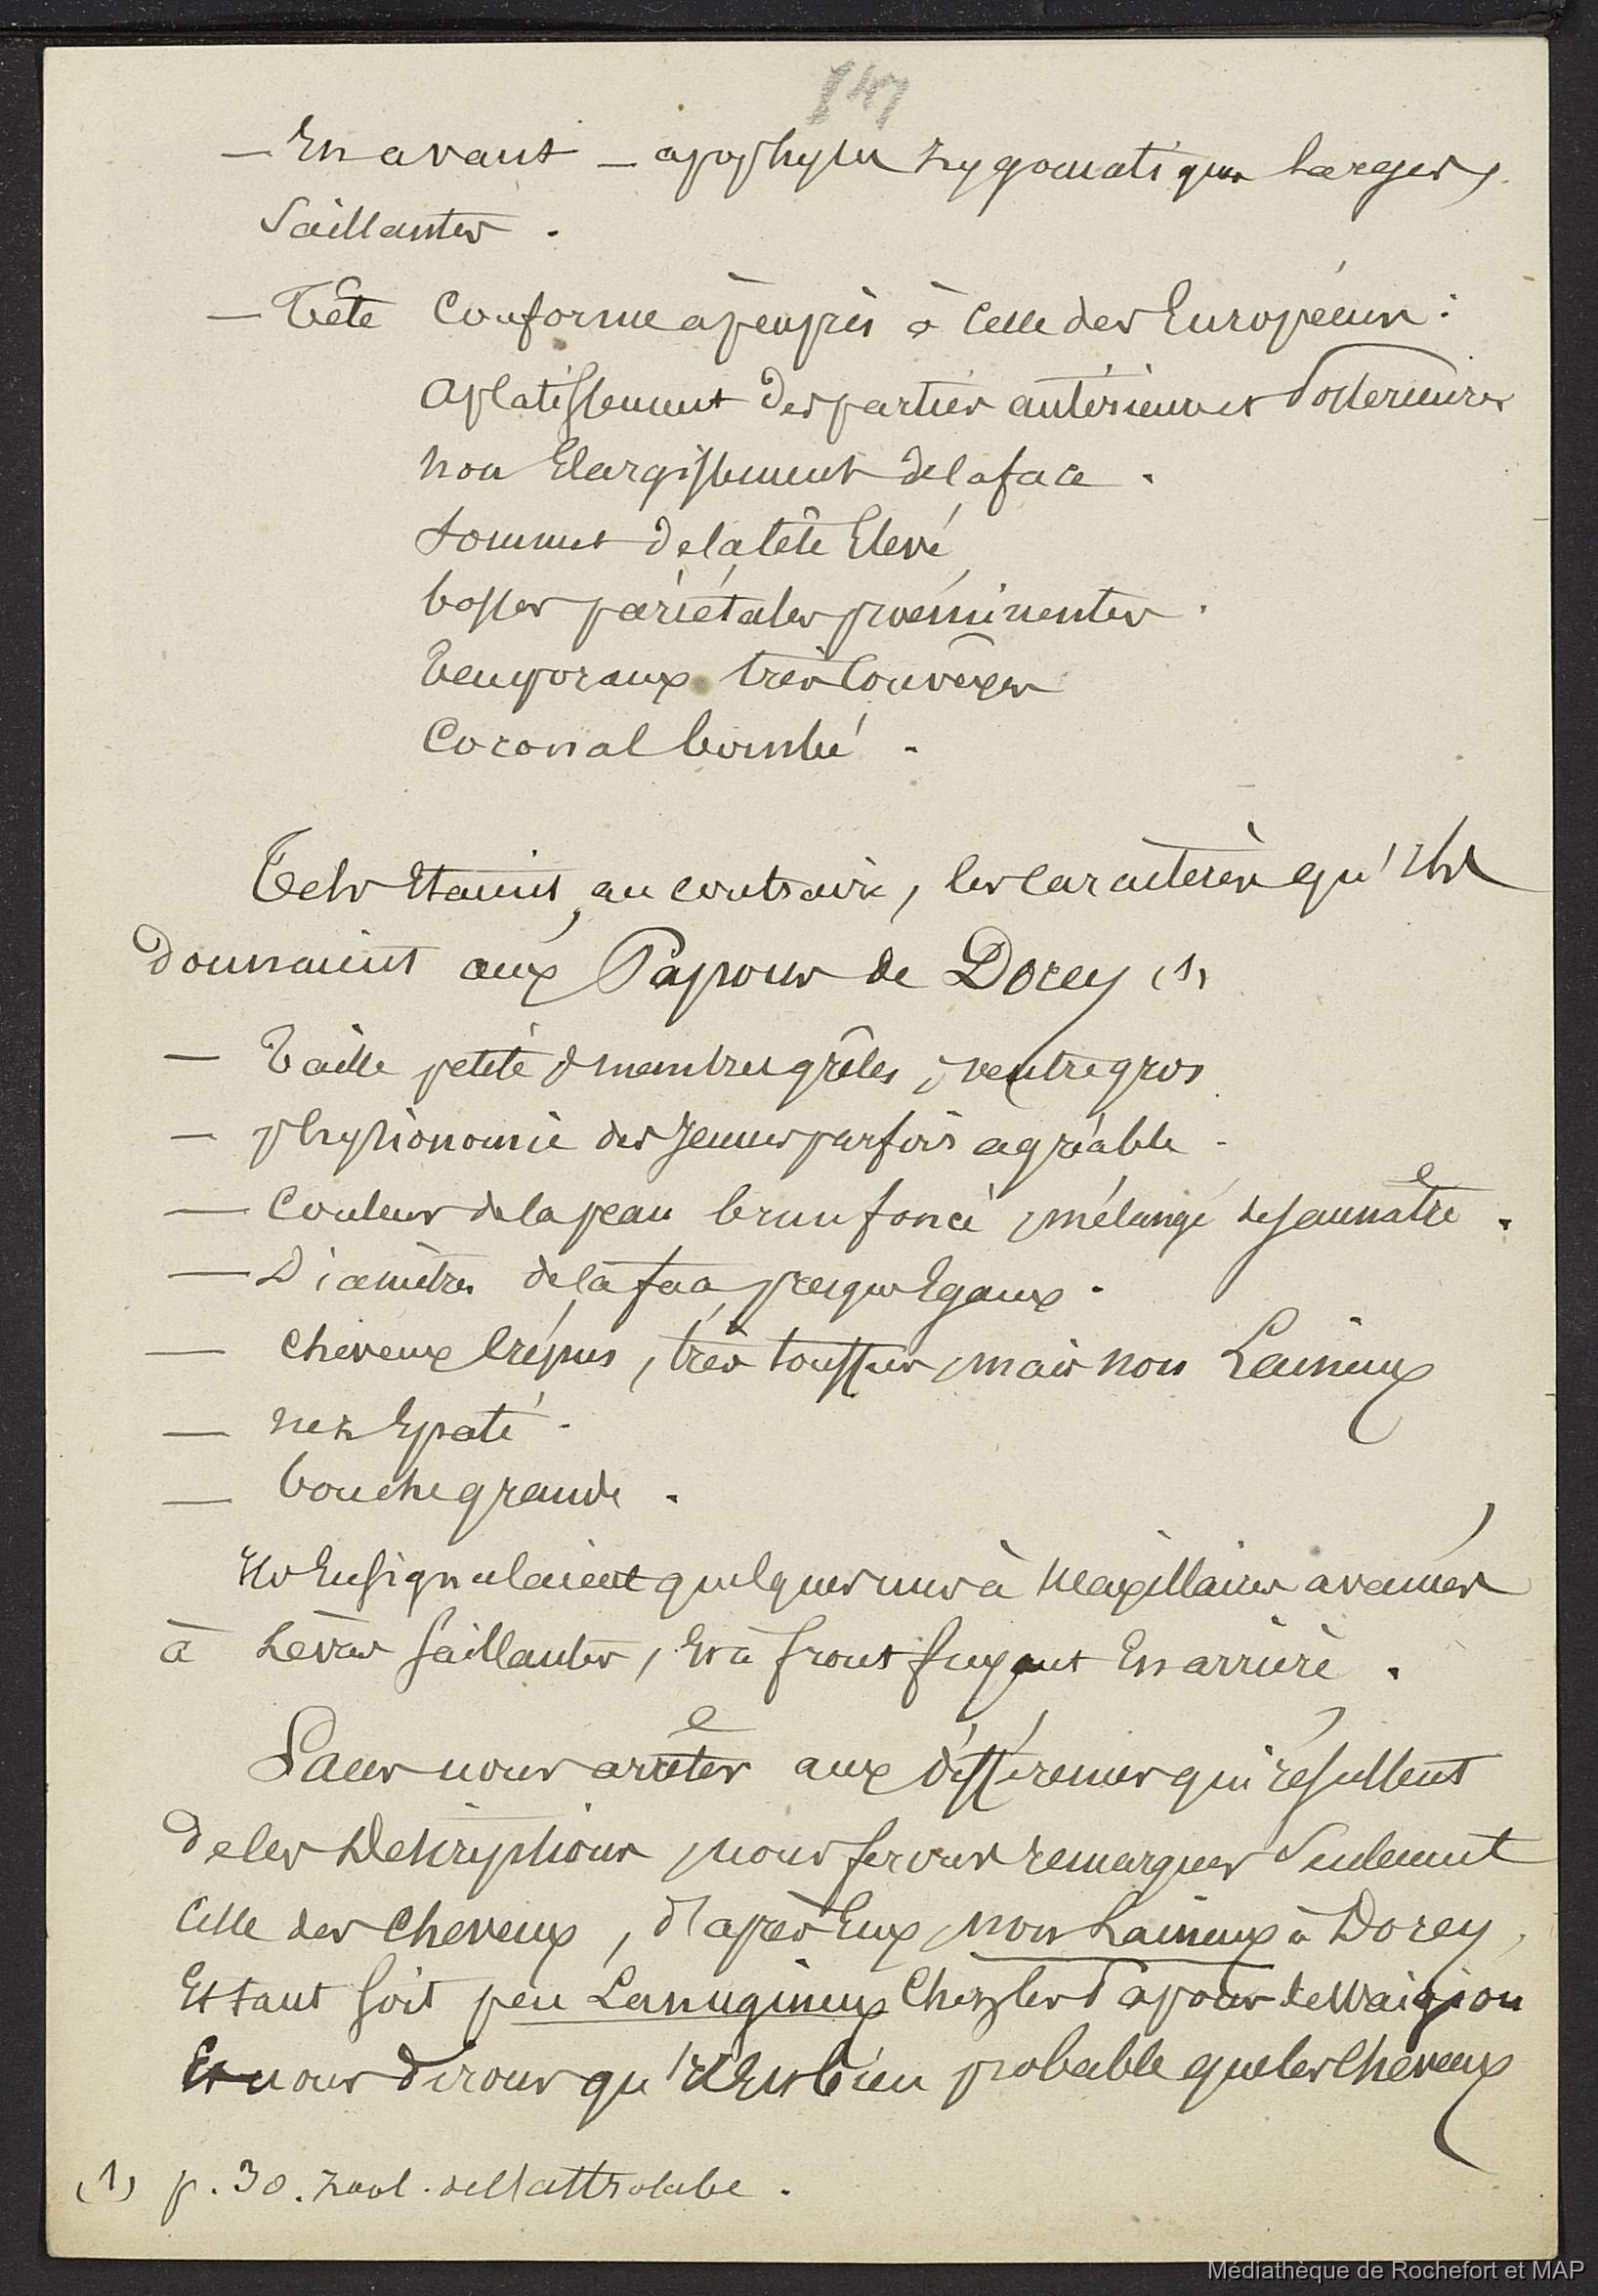 847
— En avant — apophyses zygomatiques larges,
saillantes.
— Tête conforme à peu près à celle des Européens :
Aplatissement des parties antérieures postérieures
non Elargissement de la face.
Sommet de la tête Elevé
bosses pariétales proéminentes.
Temporaux très convexes
Coronal bombé.
Tels étaient, au contraire, les caractères qu'ils
donnaient aux Papous de Dorey (1)
— Taille petite & membres grêles, ventre gros
— physionomie des jeunes parfois agréable.
— Couleur de la peau brun foncé, mélangé de jaunatre.
— Diamètres de la face presque Egaux.
— cheveux crépus, très touffus, mais non Laineux
— nez Epaté.
— bouche grande.
Ils En signalaient quelques uns à Maxillaires avancés
à Lèvres saillantes, Et à front fuyant En arrière.
Sans nous arrêter aux différences qui résultent
de les Descriptions, nous ferons remarquer seulement
celle des cheveux, d'après Eux, non Laineux à Dorey,
Et tant soit peu Lanugineux chez les Papous de Waigiou
Et nous dirons qu'il Est bien probable que les cheveux
(1) p. 30. Zool. de l'astrolabe.
Médiathèque de Rochefort et MAP